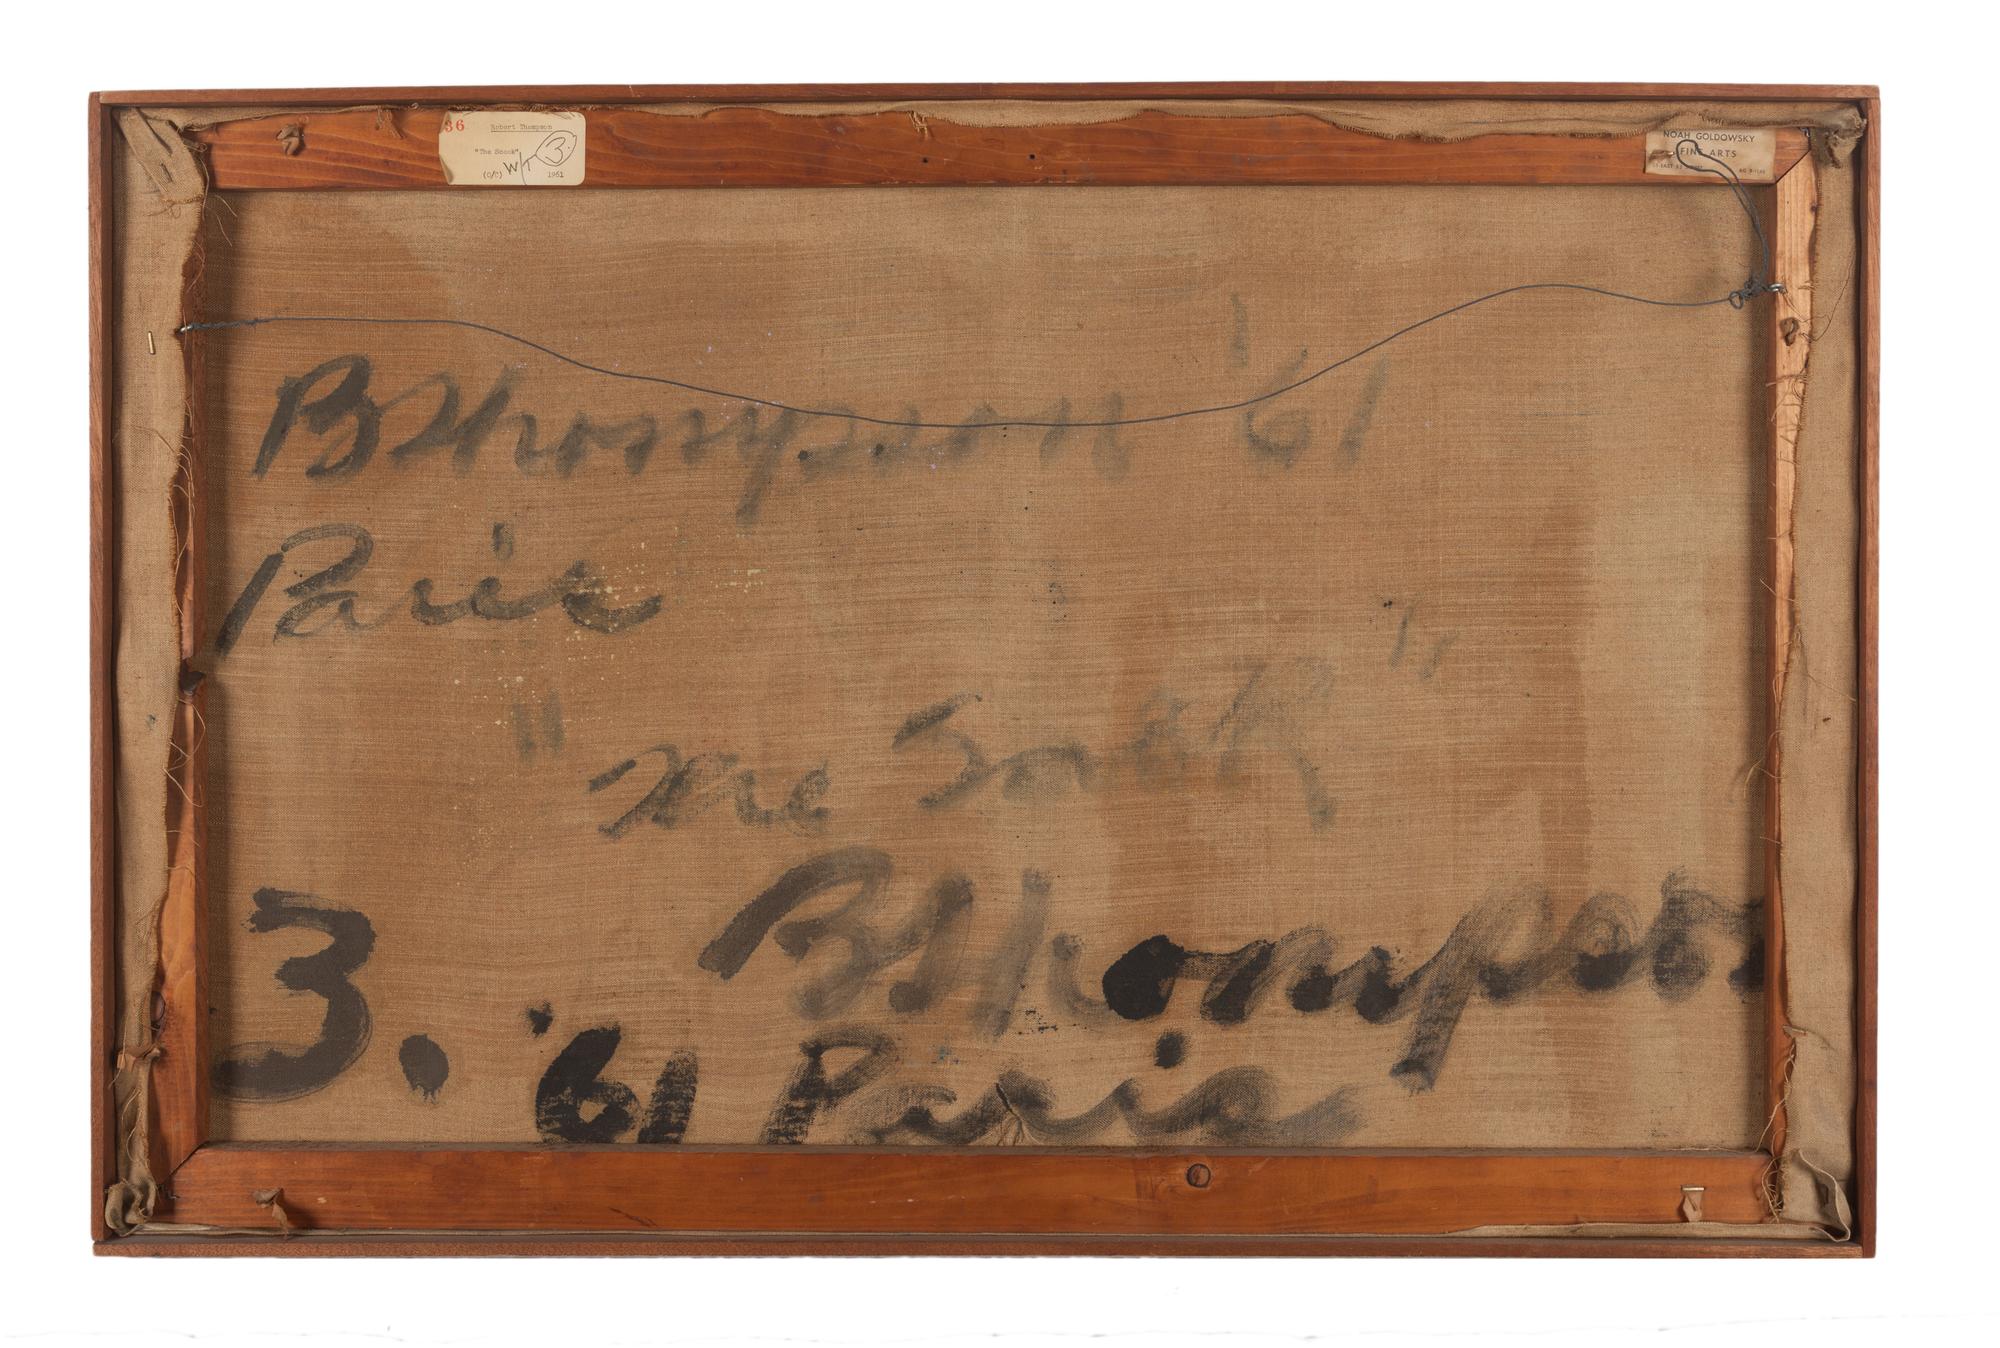 36
Robert Thompson
"The Snook"
W/T 3.
(O/C) 1961
NOAH GOLDOWSKY
FINE ARTS
B Thompson '61
Paris
"The Snook"
3. B Thompson
'61 Paris